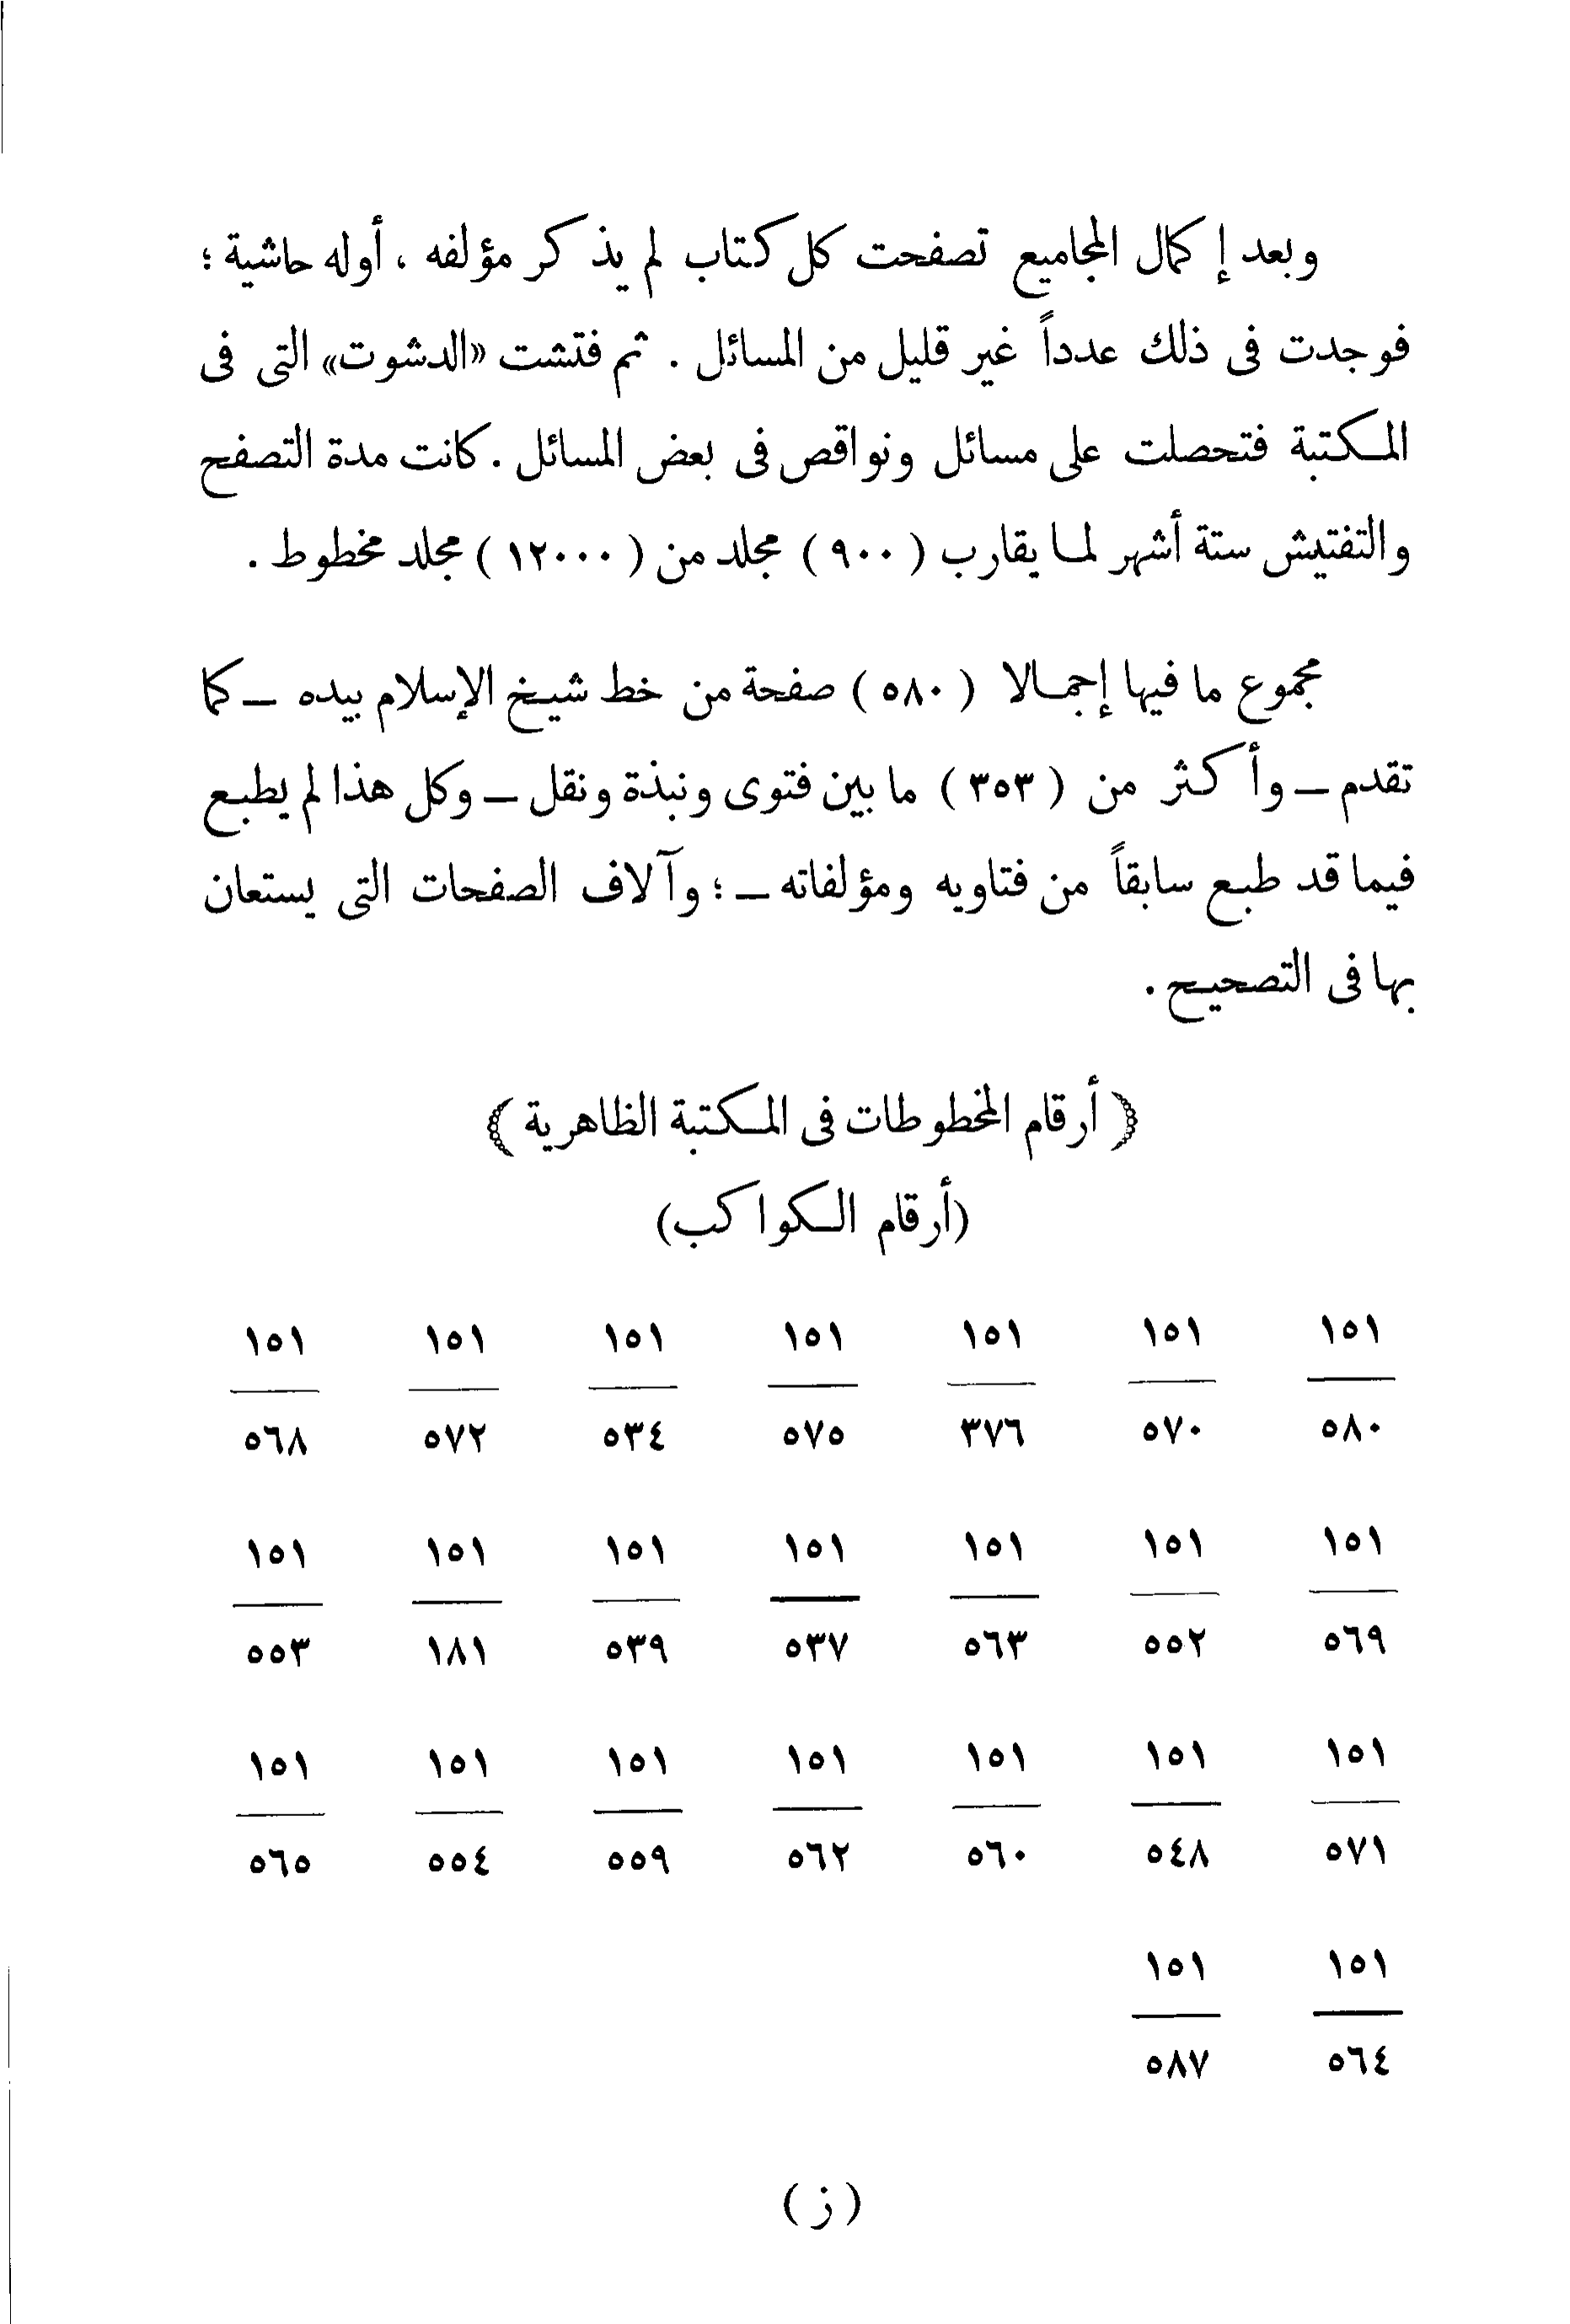 وبعد إكمال المجاميع تصفحت كل كتاب لم يذكر مؤلفه ، أوله حاشية ؛
فوجدت فى ذلك عدداً غير قليل من المسائل . ثم فتشت «الدشوت» التى فى
المكتبة فتحصلت على مسائل ونواقص فى بعض المسائل . كانت مدة التصفح
والتفتيش ستة أشهر لما يقارب ( ٩٠٠ ) مجلد من ( ١٢٠٠٠ ) مجلد مخطوط .
مجموع ما فيها إجمالا ( ٥٨٠ ) صفحة من خط شيخ الإسلام بيده – كما
تقدم – وأكثر من ( ٣٥٣ ) ما بين فتوى ونبذة ونقل – وكل هذا لم يطبع
فيما قد طبع سابقاً من فتاويه ومؤلفاته – ؛ وآلاف الصفحات التى يستعان
بها فى التصحيح .
﴿ أرقام المخطوطات فى المكتبة الظاهرية ﴾
(أرقام الكواكب)
١٥١ ١٥١ ١٥١ ١٥١ ١٥١ ١٥١ ١٥١
٥٨٠ ٥٧٠ ٣٧٦ ٥٧٥ ٥٣٤ ٥٧٢ ٥٦٨
١٥١ ١٥١ ١٥١ ١٥١ ١٥١ ١٥١ ١٥١
٥٦٩ ٥٥٢ ٥٦٣ ٥٣٧ ٥٣٩ ١٨١ ٥٥٣
١٥١ ١٥١ ١٥١ ١٥١ ١٥١ ١٥١ ١٥١
٥٧١ ٥٤٨ ٥٦٠ ٥٦٢ ٥٥٩ ٥٥٤ ٥٦٥
١٥١ ١٥١
٥٦٤ ٥٨٧
( ز )